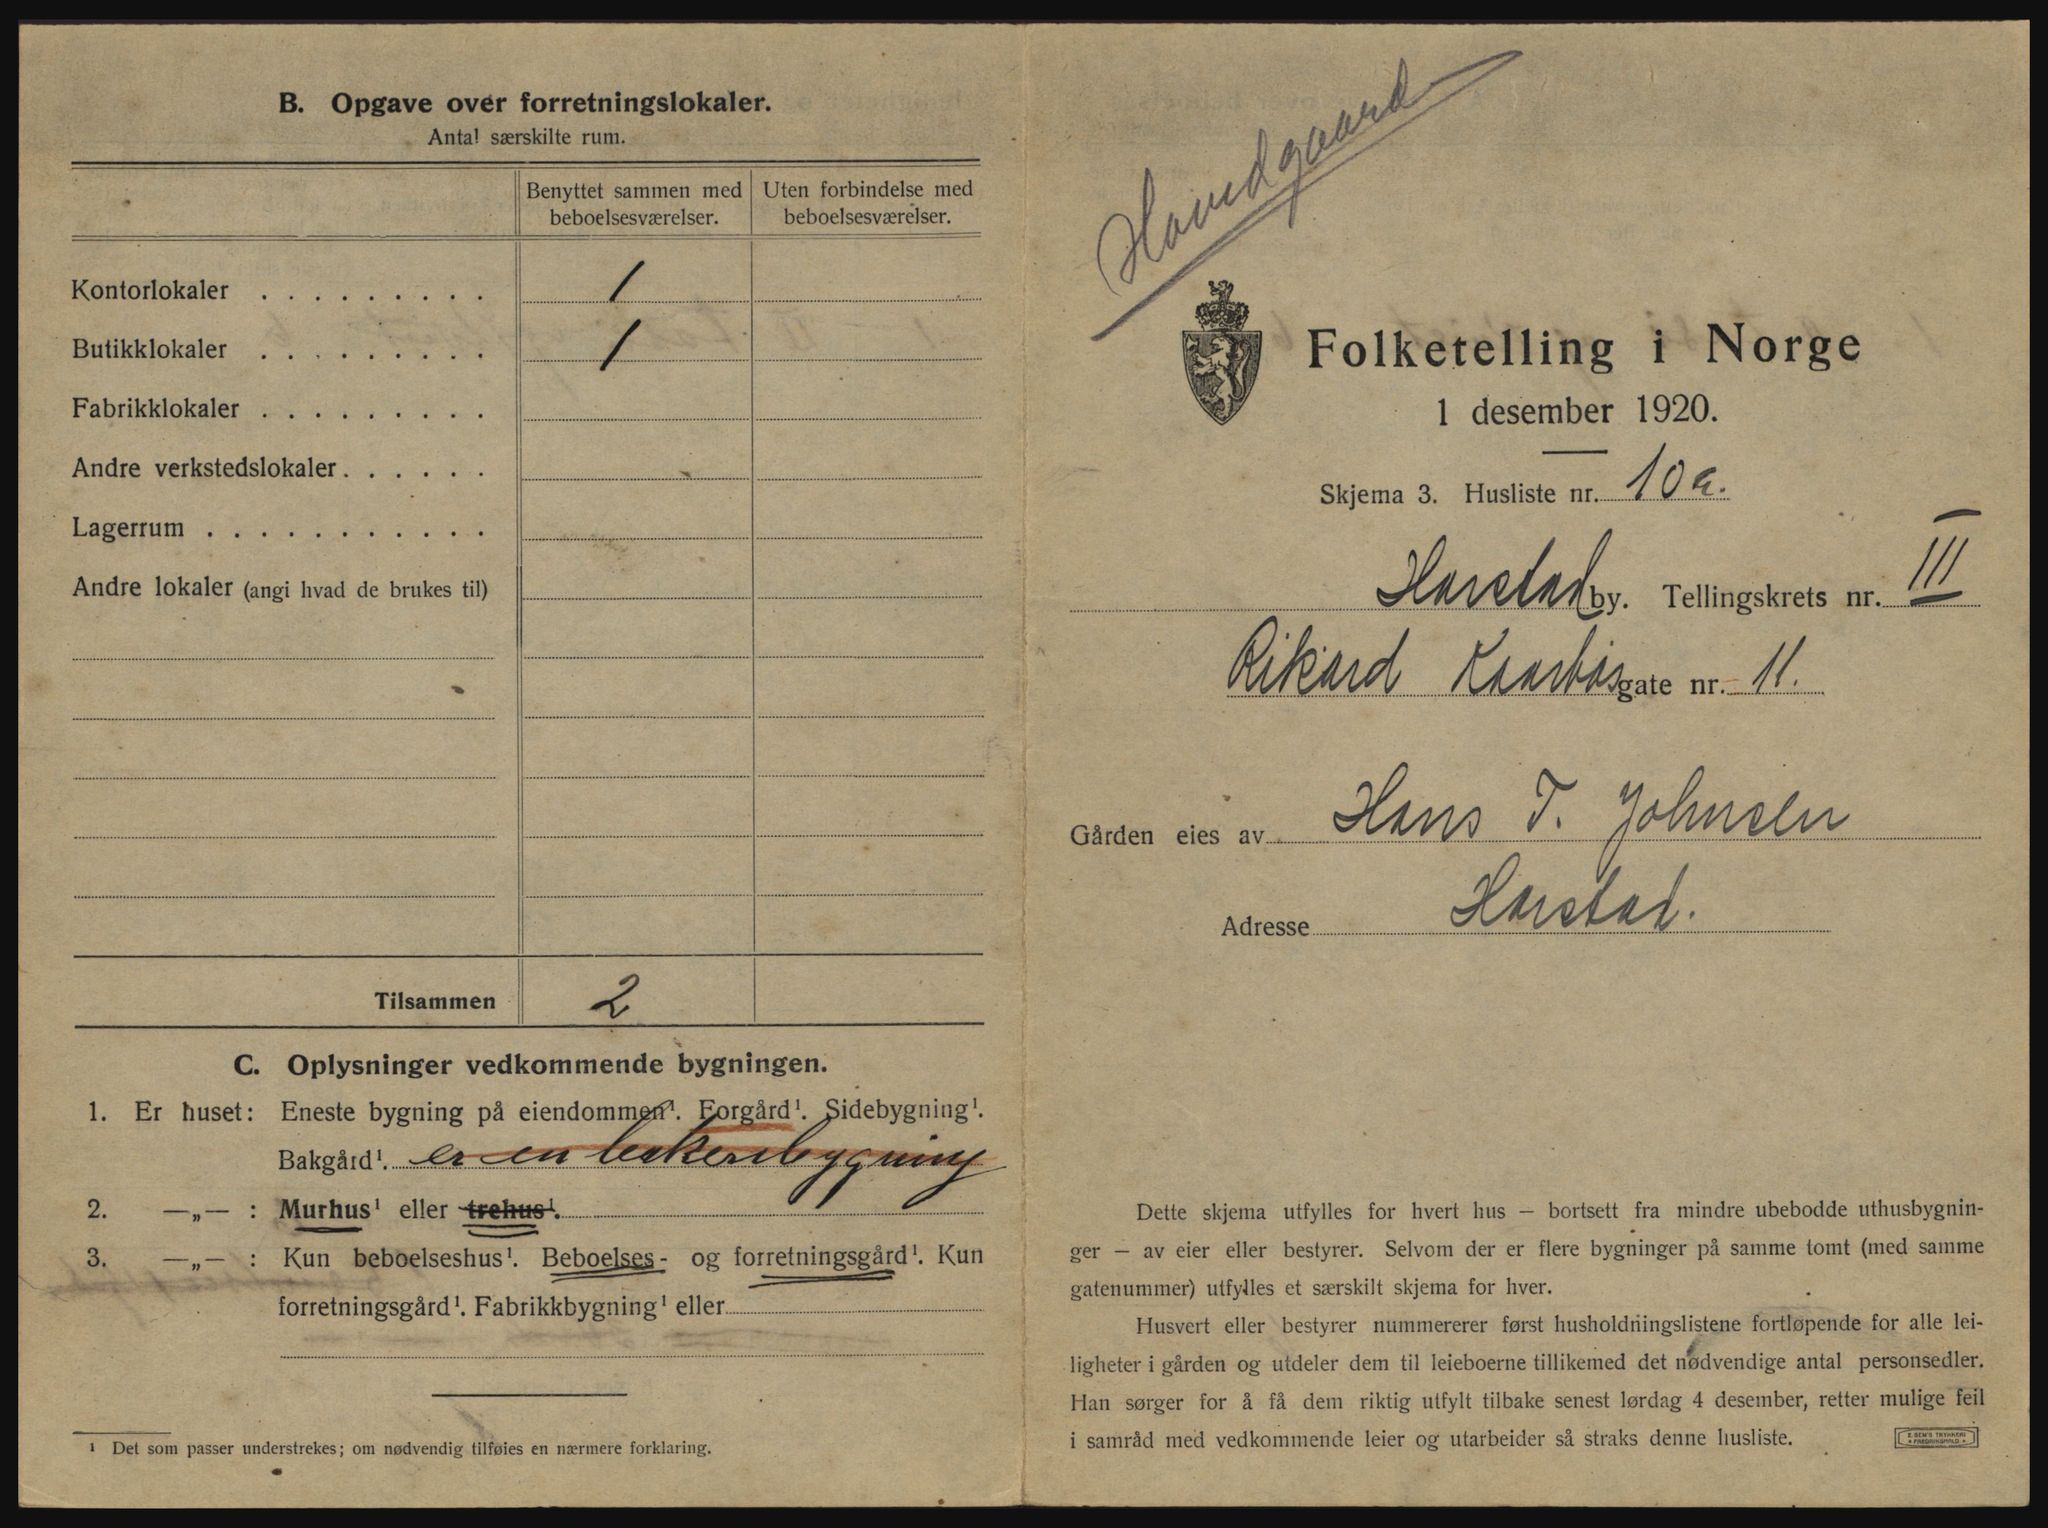 B. Opgave over forretningslokaler.
Antal særskilte rum.
Benyttet sammen med beboelsesværelser.
Uten forbindelse med beboelsesværelser.
Kontorlokaler . . . . . . . . . 1
Butikklokaler . . . . . . . . . 1
Fabrikklokaler . . . . . . . . .
Andre verkstedslokaler . . . . . .
Lagerrum . . . . . . . . . . . .
Andre lokaler (angi hvad de brukes til)
Tilsammen 2
C. Oplysninger vedkommende bygningen.
1. Er huset: Eneste bygning på eiendommen¹. Forgård¹. Sidebygning¹.
Bakgård¹. er en bygning
2. —„— : Murhus¹ eller trehus¹.
3. —„— : Kun beboelseshus¹. Beboelses- og forretningsgård¹. Kun
forretningsgård¹. Fabrikkbygning¹ eller
¹ Det som passer understrekes; om nødvendig tilføies en nærmere forklaring.
Havndgaard
Folketelling i Norge
1 desember 1920.
Skjema 3. Husliste nr. 10 a.
Harstad by. Tellingskrets nr. III
Rikard Kaarbøs gate nr. 11.
Gården eies av Hans T. Johnsen
Adresse Harstad.
Dette skjema utfylles for hvert hus – bortsett fra mindre ubebodde uthusbygnin-
ger – av eier eller bestyrer. Selvom der er flere bygninger på samme tomt (med samme
gatenummer) utfylles et særskilt skjema for hver.
Husvert eller bestyrer nummererer først husholdningslistene fortløpende for alle lei-
ligheter i gården og utdeler dem til leieboerne tillikemed det nødvendige antal personsedler.
Han sørger for å få dem riktig utfylt tilbake senest lørdag 4 desember, retter mulige feil
i samråd med vedkommende leier og utarbeider så straks denne husliste.
E. SEM'S TRYKKERI
FREDRIKSHALD